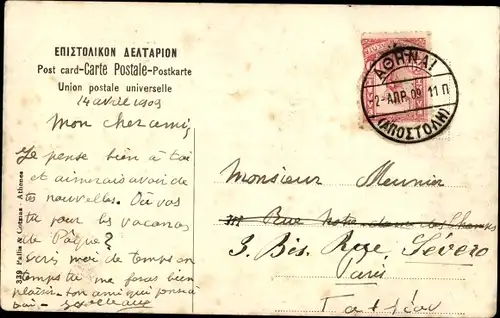 ΕΠΙΣΤΟΛΙΚΟΝ ΔΕΛΤΑΡΙΟΝ
Post card-Carte Postale-Postkarte
Union postale universelle
14 avril 1909
Mon cher ami,
Je pense bien à toi
et aimerais avoir de
tes nouvelles. Où vas
tu pour les vacances
de Pâque?
Ecris moi de temps en
temps tu me feras bien
plaisir. ton ami qui pense à
toi.
339 Pallis & Cotzias - Athènes
ΑΘΗΝΑΙ
2-ΑΠΡ. 09 11 Π
(ΑΠΟΣΤΟΛΗ)
Monsieur Meunier
Rue Notre dame des Champs
3. Bis. Rue Severo
Paris